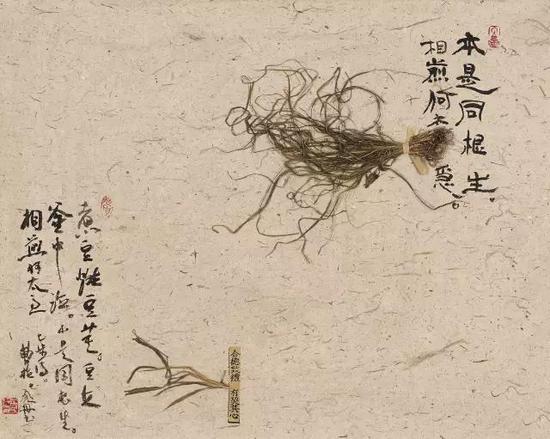 本是同根生。
相煎何太急。
煮豆燃豆萁。豆在
釜中泣。本是同根生。
相煎何太急
七步诗。
曹植